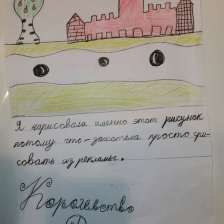 Я нарисовала именно этот рисунок
потому что-захотела просто рисо-
совать из рекламы.
Королевство